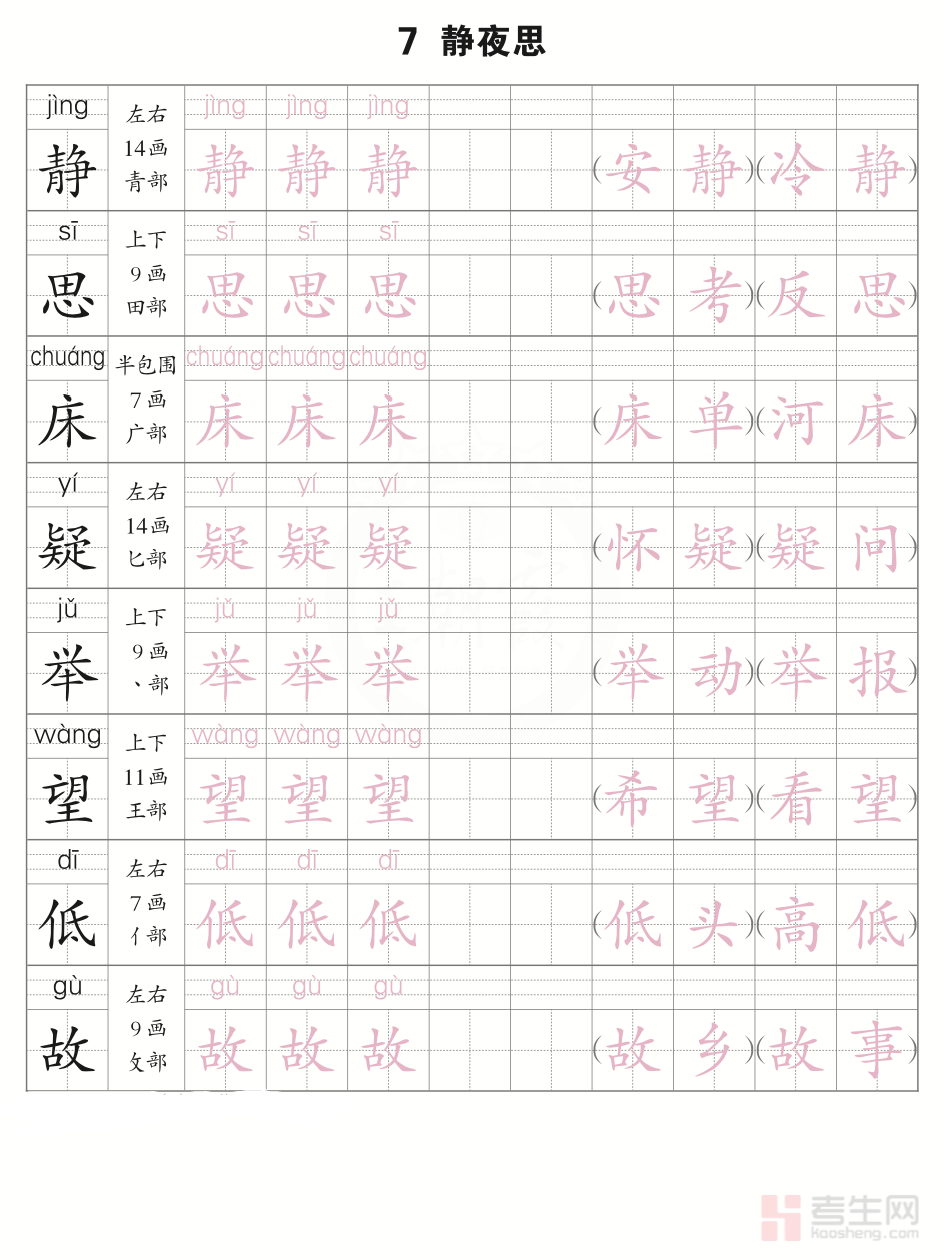 7 静夜思
jìng 左右 jìng jìng jìng
静 14画 青部 静 静 静 (安 静)(冷 静)
sī 上下 sī sī sī
思 9画 田部 思 思 思 (思 考)(反 思)
chuáng 半包围 chuáng chuáng chuáng
床 7画 广部 床 床 床 (床 单)(河 床)
yí 左右 yí yí yí
疑 14画 匕部 疑 疑 疑 (怀 疑)(疑 问)
jǔ 上下 jǔ jǔ jǔ
举 9画 丶部 举 举 举 (举 动)(举 报)
wàng 上下 wàng wàng wàng
望 11画 王部 望 望 望 (希 望)(看 望)
dī 左右 dī dī dī
低 7画 亻部 低 低 低 (低 头)(高 低)
gù 左右 gù gù gù
故 9画 攵部 故 故 故 (故 乡)(故 事)
考生网
kaosheng.com